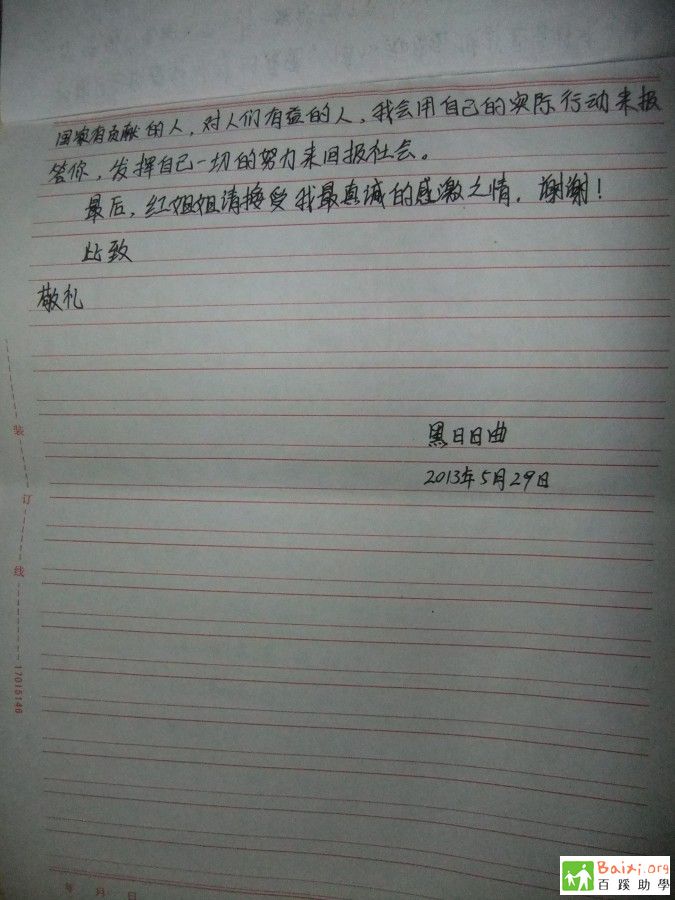 国家有贡献的人，对人们有益的人，我会用自己的实际行动来报
答你，发挥自己一切的努力来回报社会。
最后，红姐姐请接受我最真诚的感激之情，谢谢！
此致
敬礼
黑日日曲
2013年5月29日
装
订
线
17015146
年 月 日
Baixi.org
百蹊助學